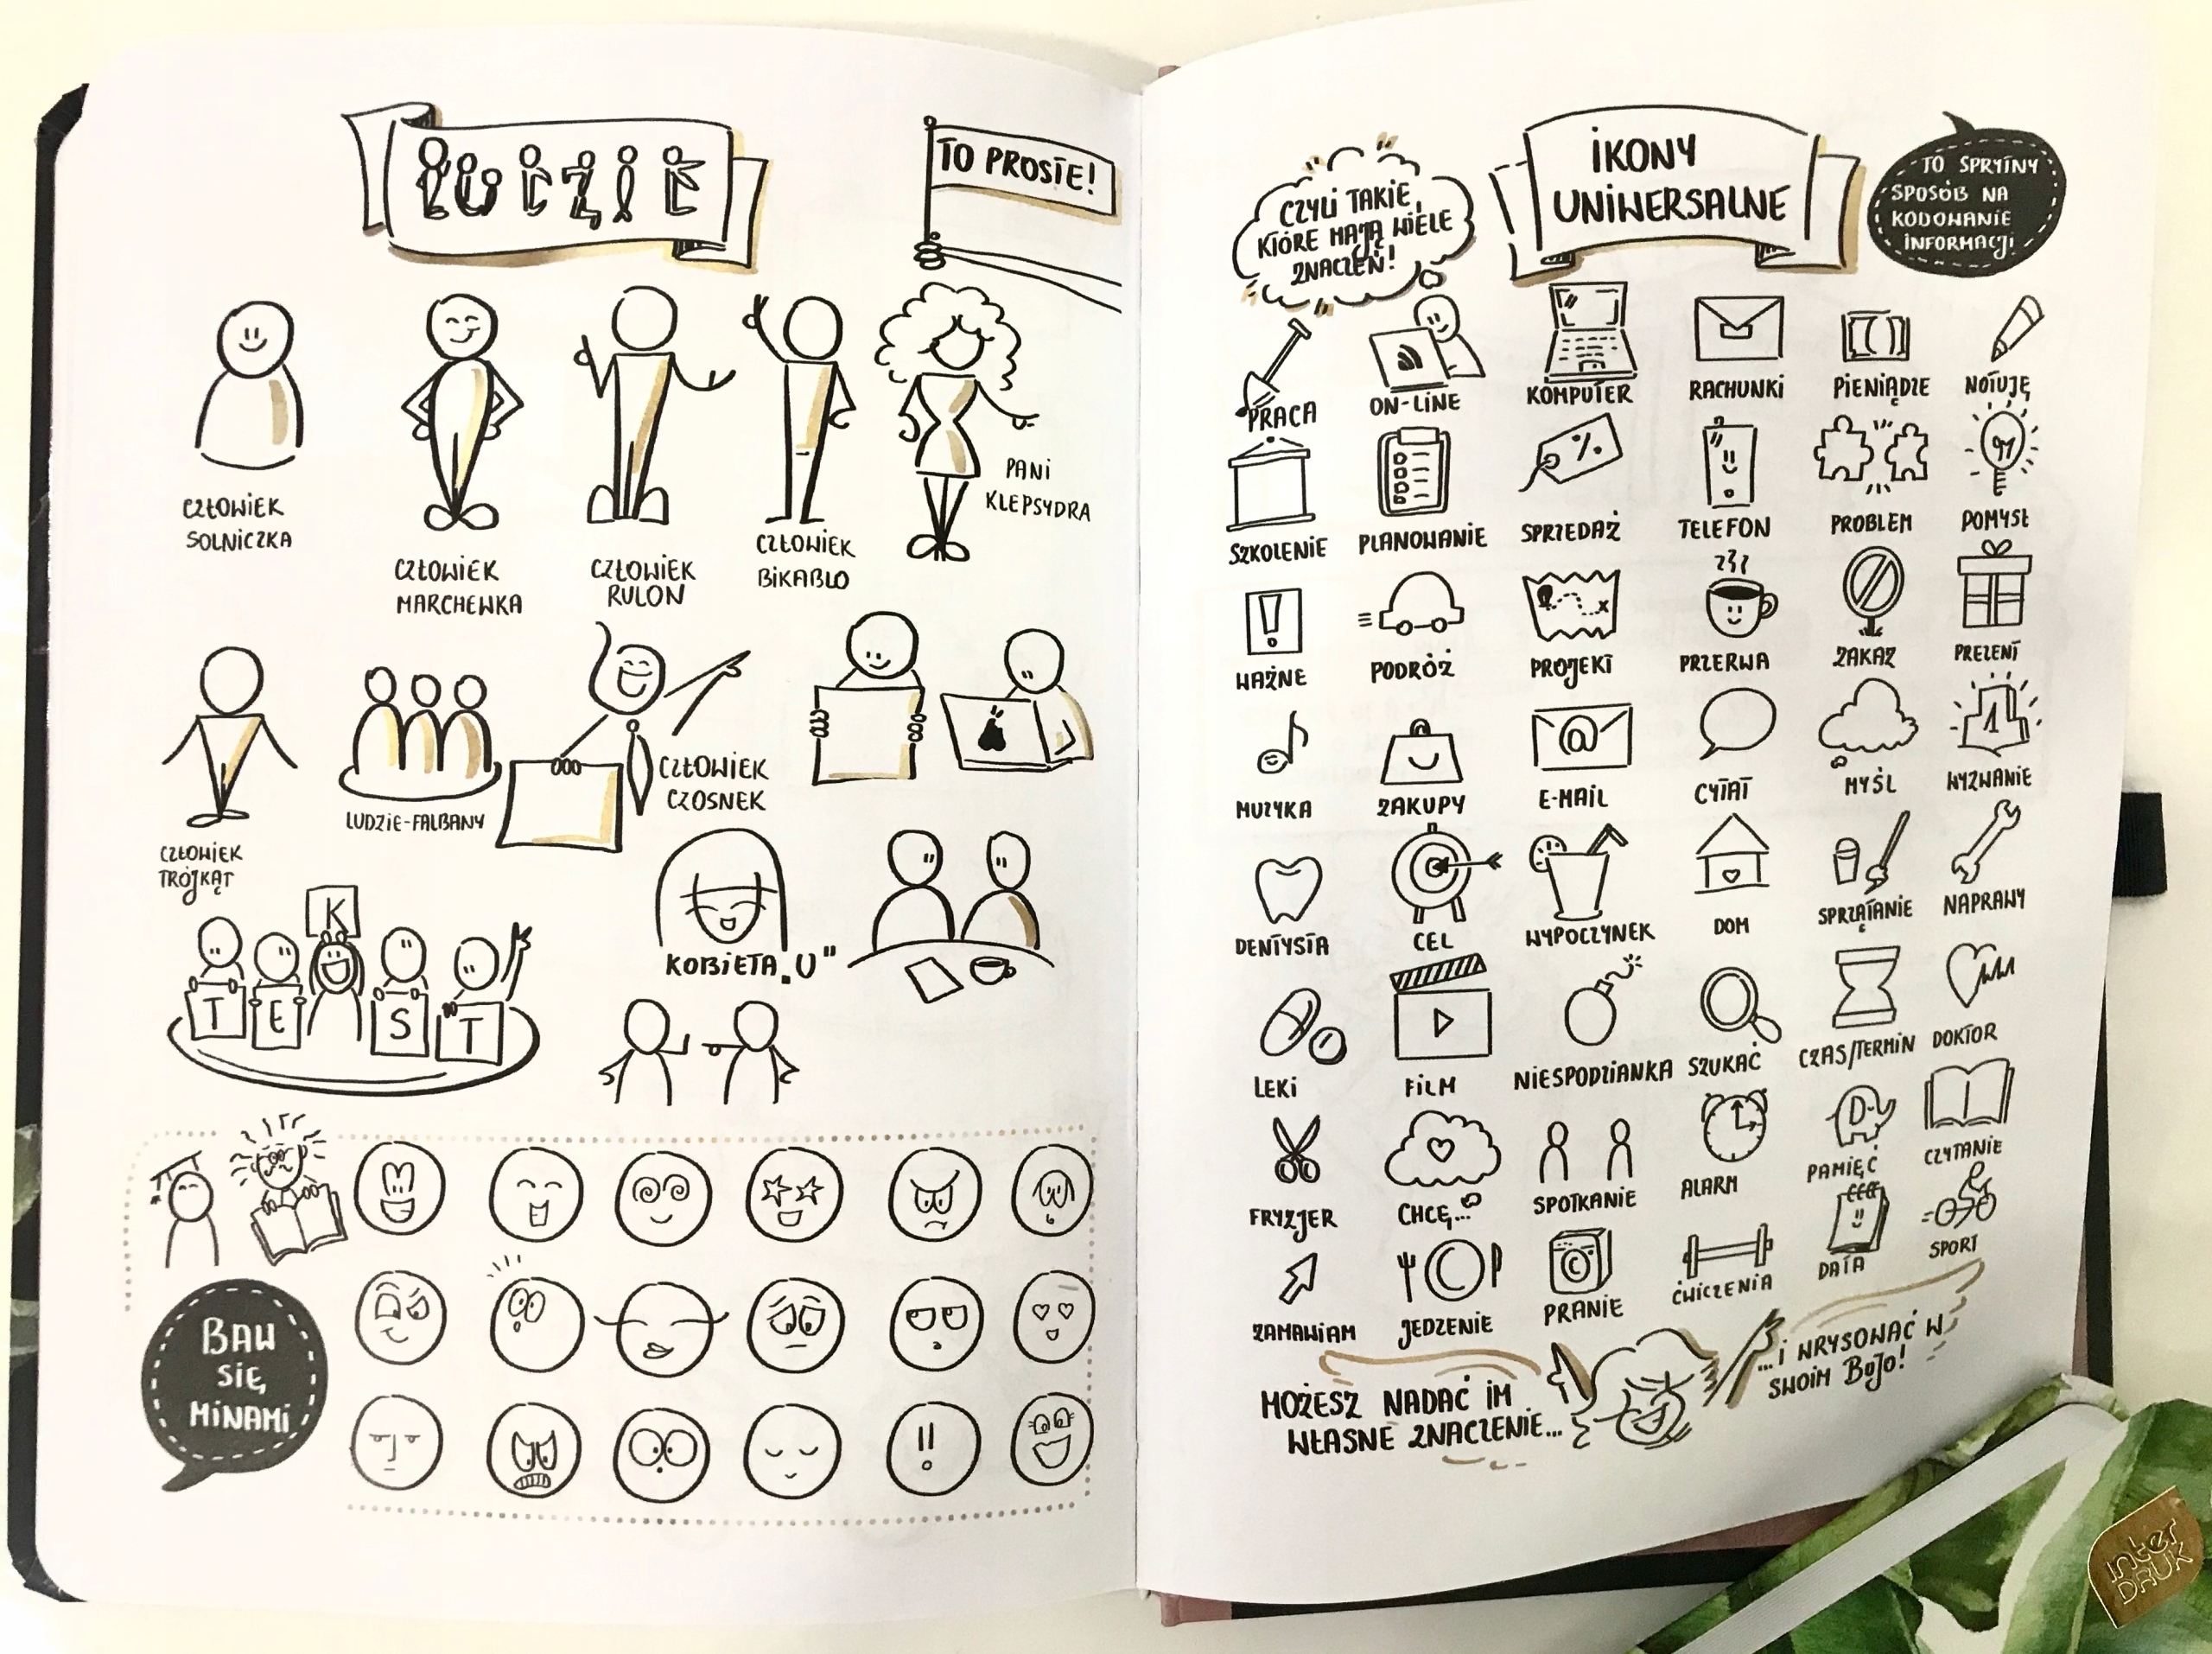 LUDZIE
TO PROSTE!
CZŁOWIEK
SOLNICZKA
CZŁOWIEK
MARCHEWKA
CZŁOWIEK
RULON
CZŁOWIEK
BIKABLO
PANI
KLEPSYDRA
CZŁOWIEK
TRÓJKĄT
LUDZIE-FALBANY
CZŁOWIEK
CZOSNEK
K
T E S T
KOBIETA „U"
BAW
SIĘ
MINAMI
!!
CZYLI TAKIE,
KTÓRE MAJĄ WIELE
ZNACZEŃ!
IKONY
UNIWERSALNE
TO SPRYTNY
SPOSÓB NA
KODOWANIE
INFORMACJI
PRACA
ON-LINE
KOMPUTER
RACHUNKI
PIENIĄDZE
NOTUJĘ
%
SZKOLENIE
PLANOWANIE
SPRZEDAŻ
TELEFON
PROBLEM
POMYSŁ
!
x
WAŻNE
PODRÓŻ
PROJEKT
PRZERWA
ZAKAZ
PREZENT
@
1
MUZYKA
ZAKUPY
E-MAIL
CYTAT
MYŚL
WYZWANIE
DENTYSTA
CEL
WYPOCZYNEK
DOM
SPRZĄTANIE
NAPRAWY
LEKI
FILM
NIESPODZIANKA
SZUKAĆ
CZAS/TERMIN
DOKTOR
FRYZJER
CHCĘ...
SPOTKANIE
ALARM
PAMIĘĆ
CZYTANIE
ZAMAWIAM
JEDZENIE
PRANIE
ĆWICZENIA
DATA
SPORT
MOŻESZ NADAĆ IM
WŁASNE ZNACZENIE...
...I WRYSOWAĆ W
SWOIM BOJO!
inter
DRUK